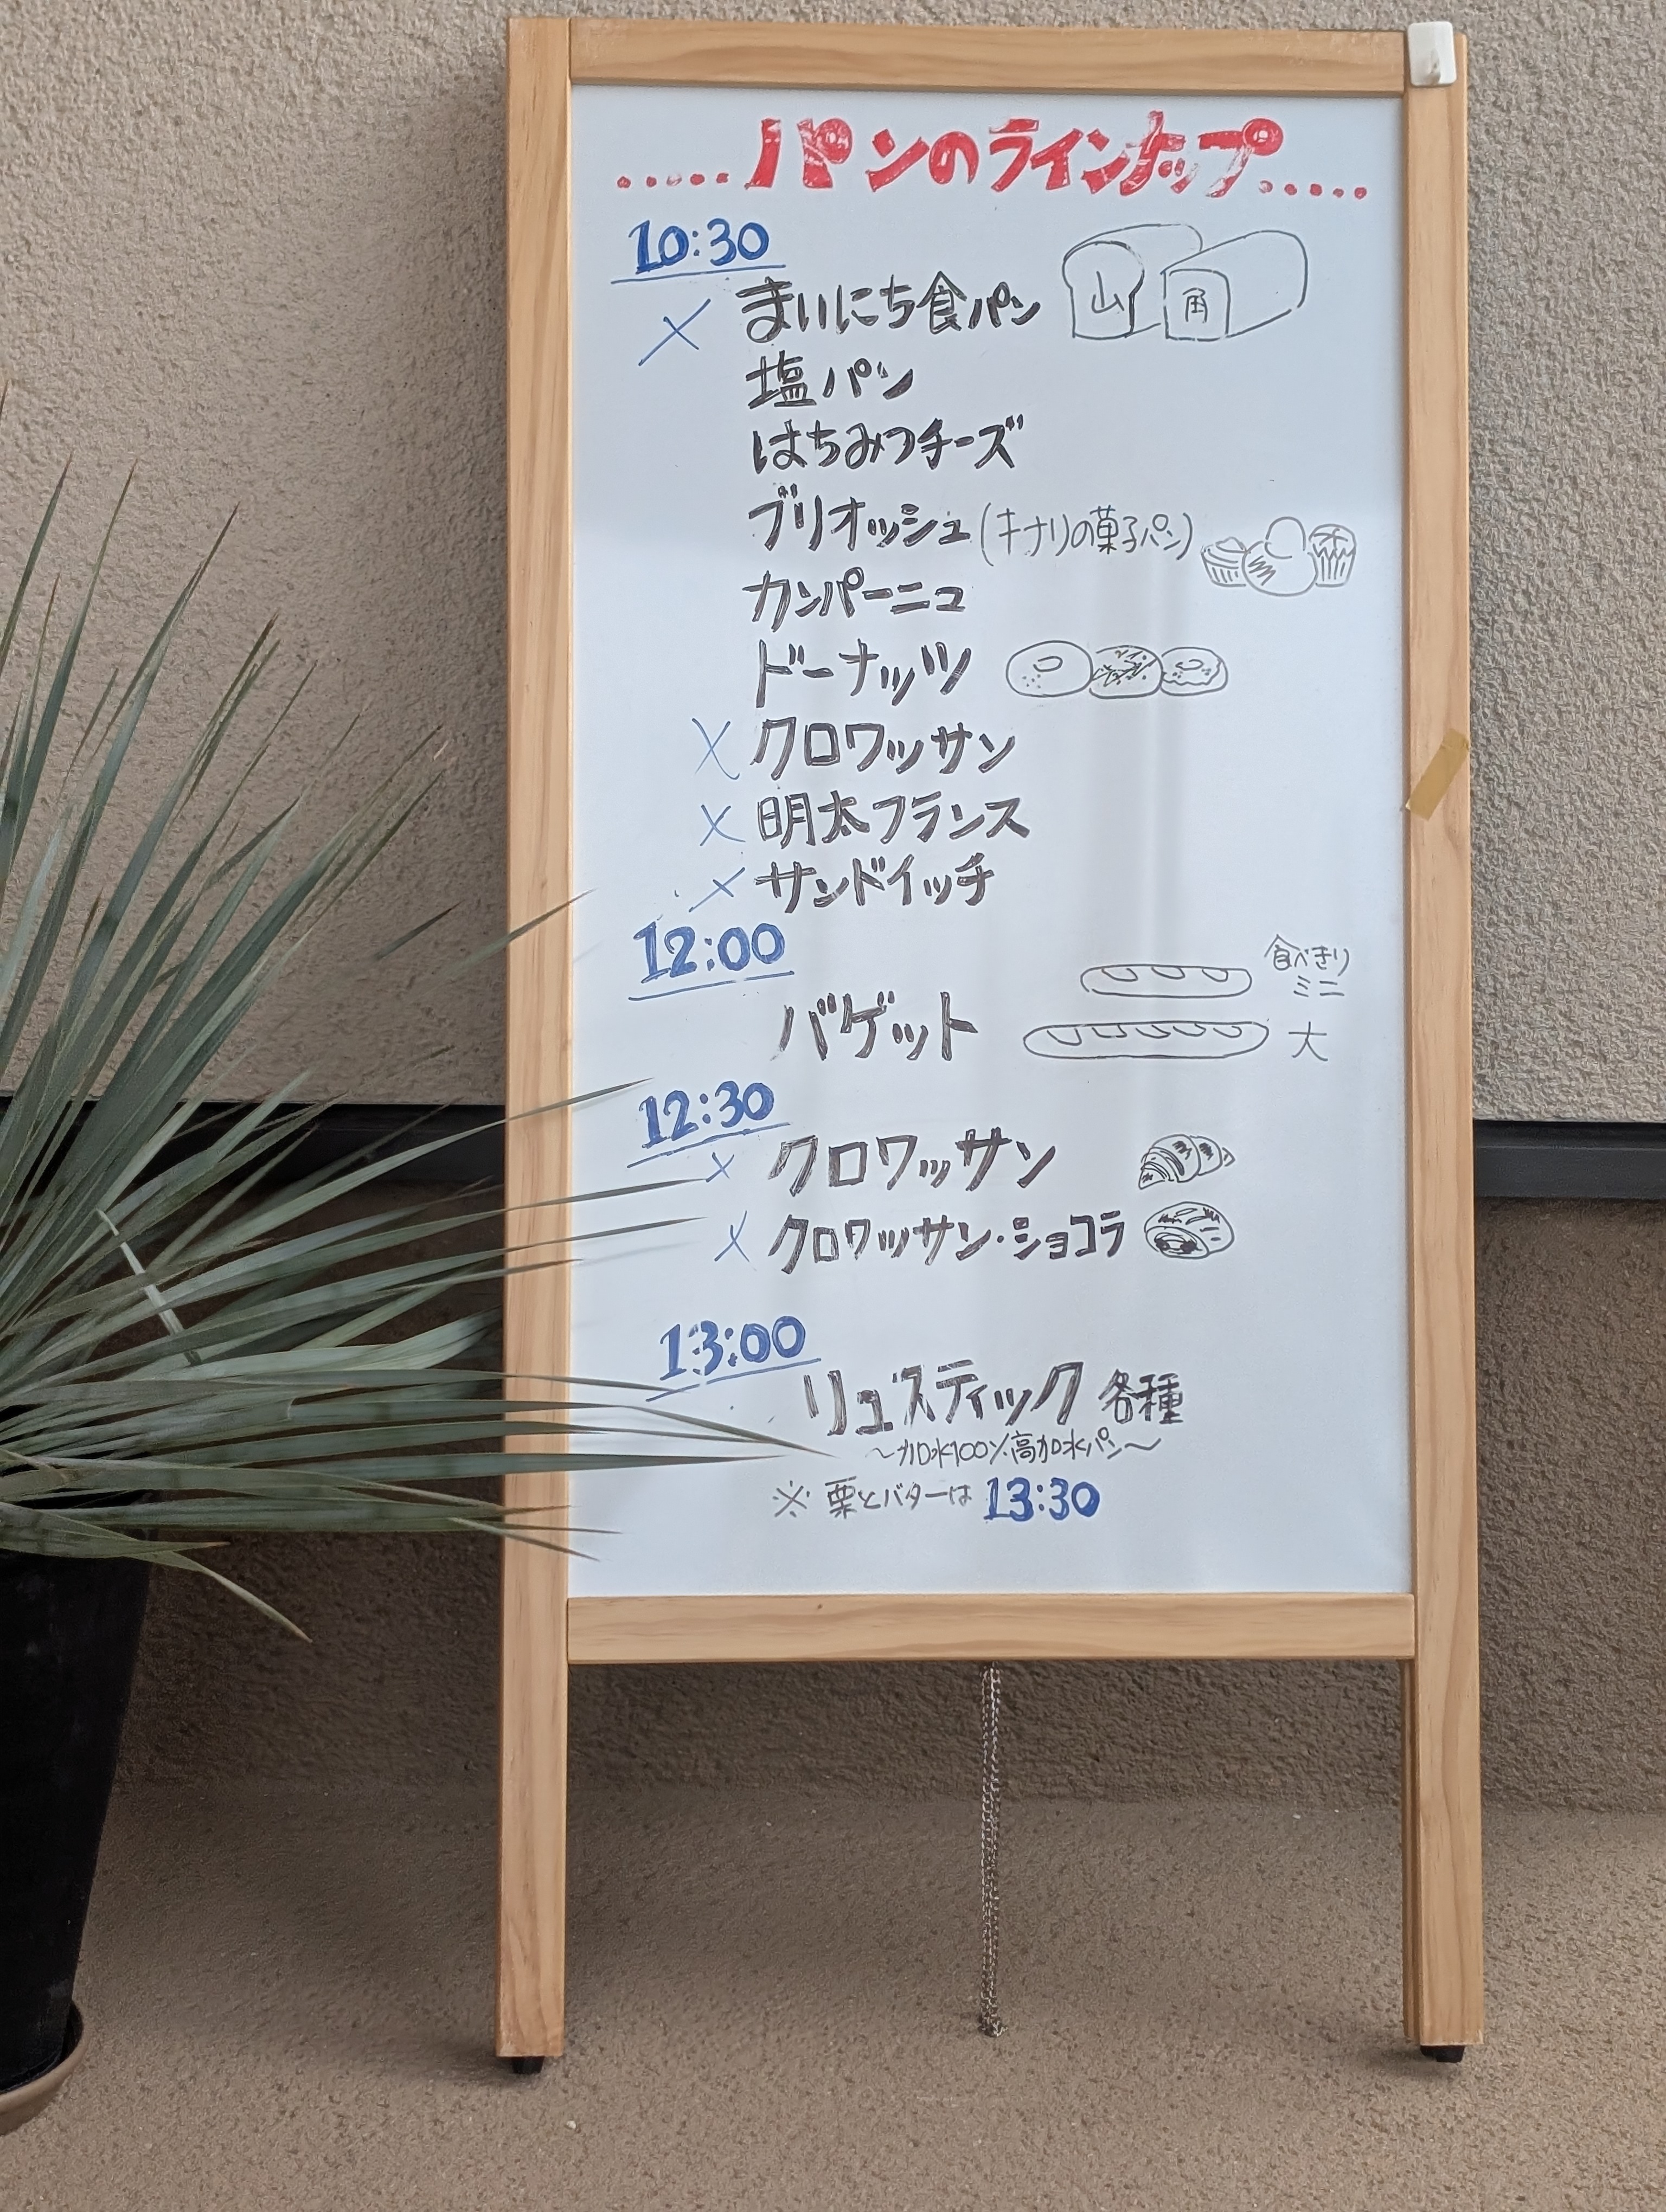 .....パンのラインナップ.....
10:30
× まいにち食パン 山 角
塩パン
はちみつチーズ
ブリオッシュ(キナリの菓子パン)
カンパーニュ
ドーナッツ
× クロワッサン
× 明太フランス
× サンドイッチ
12:00
食べきり
ミニ
バゲット 大
12:30
× クロワッサン
× クロワッサン・ショコラ
13:00
リュスティック 各種
〜加水100%高加水パン〜
※ 栗とバターは 13:30